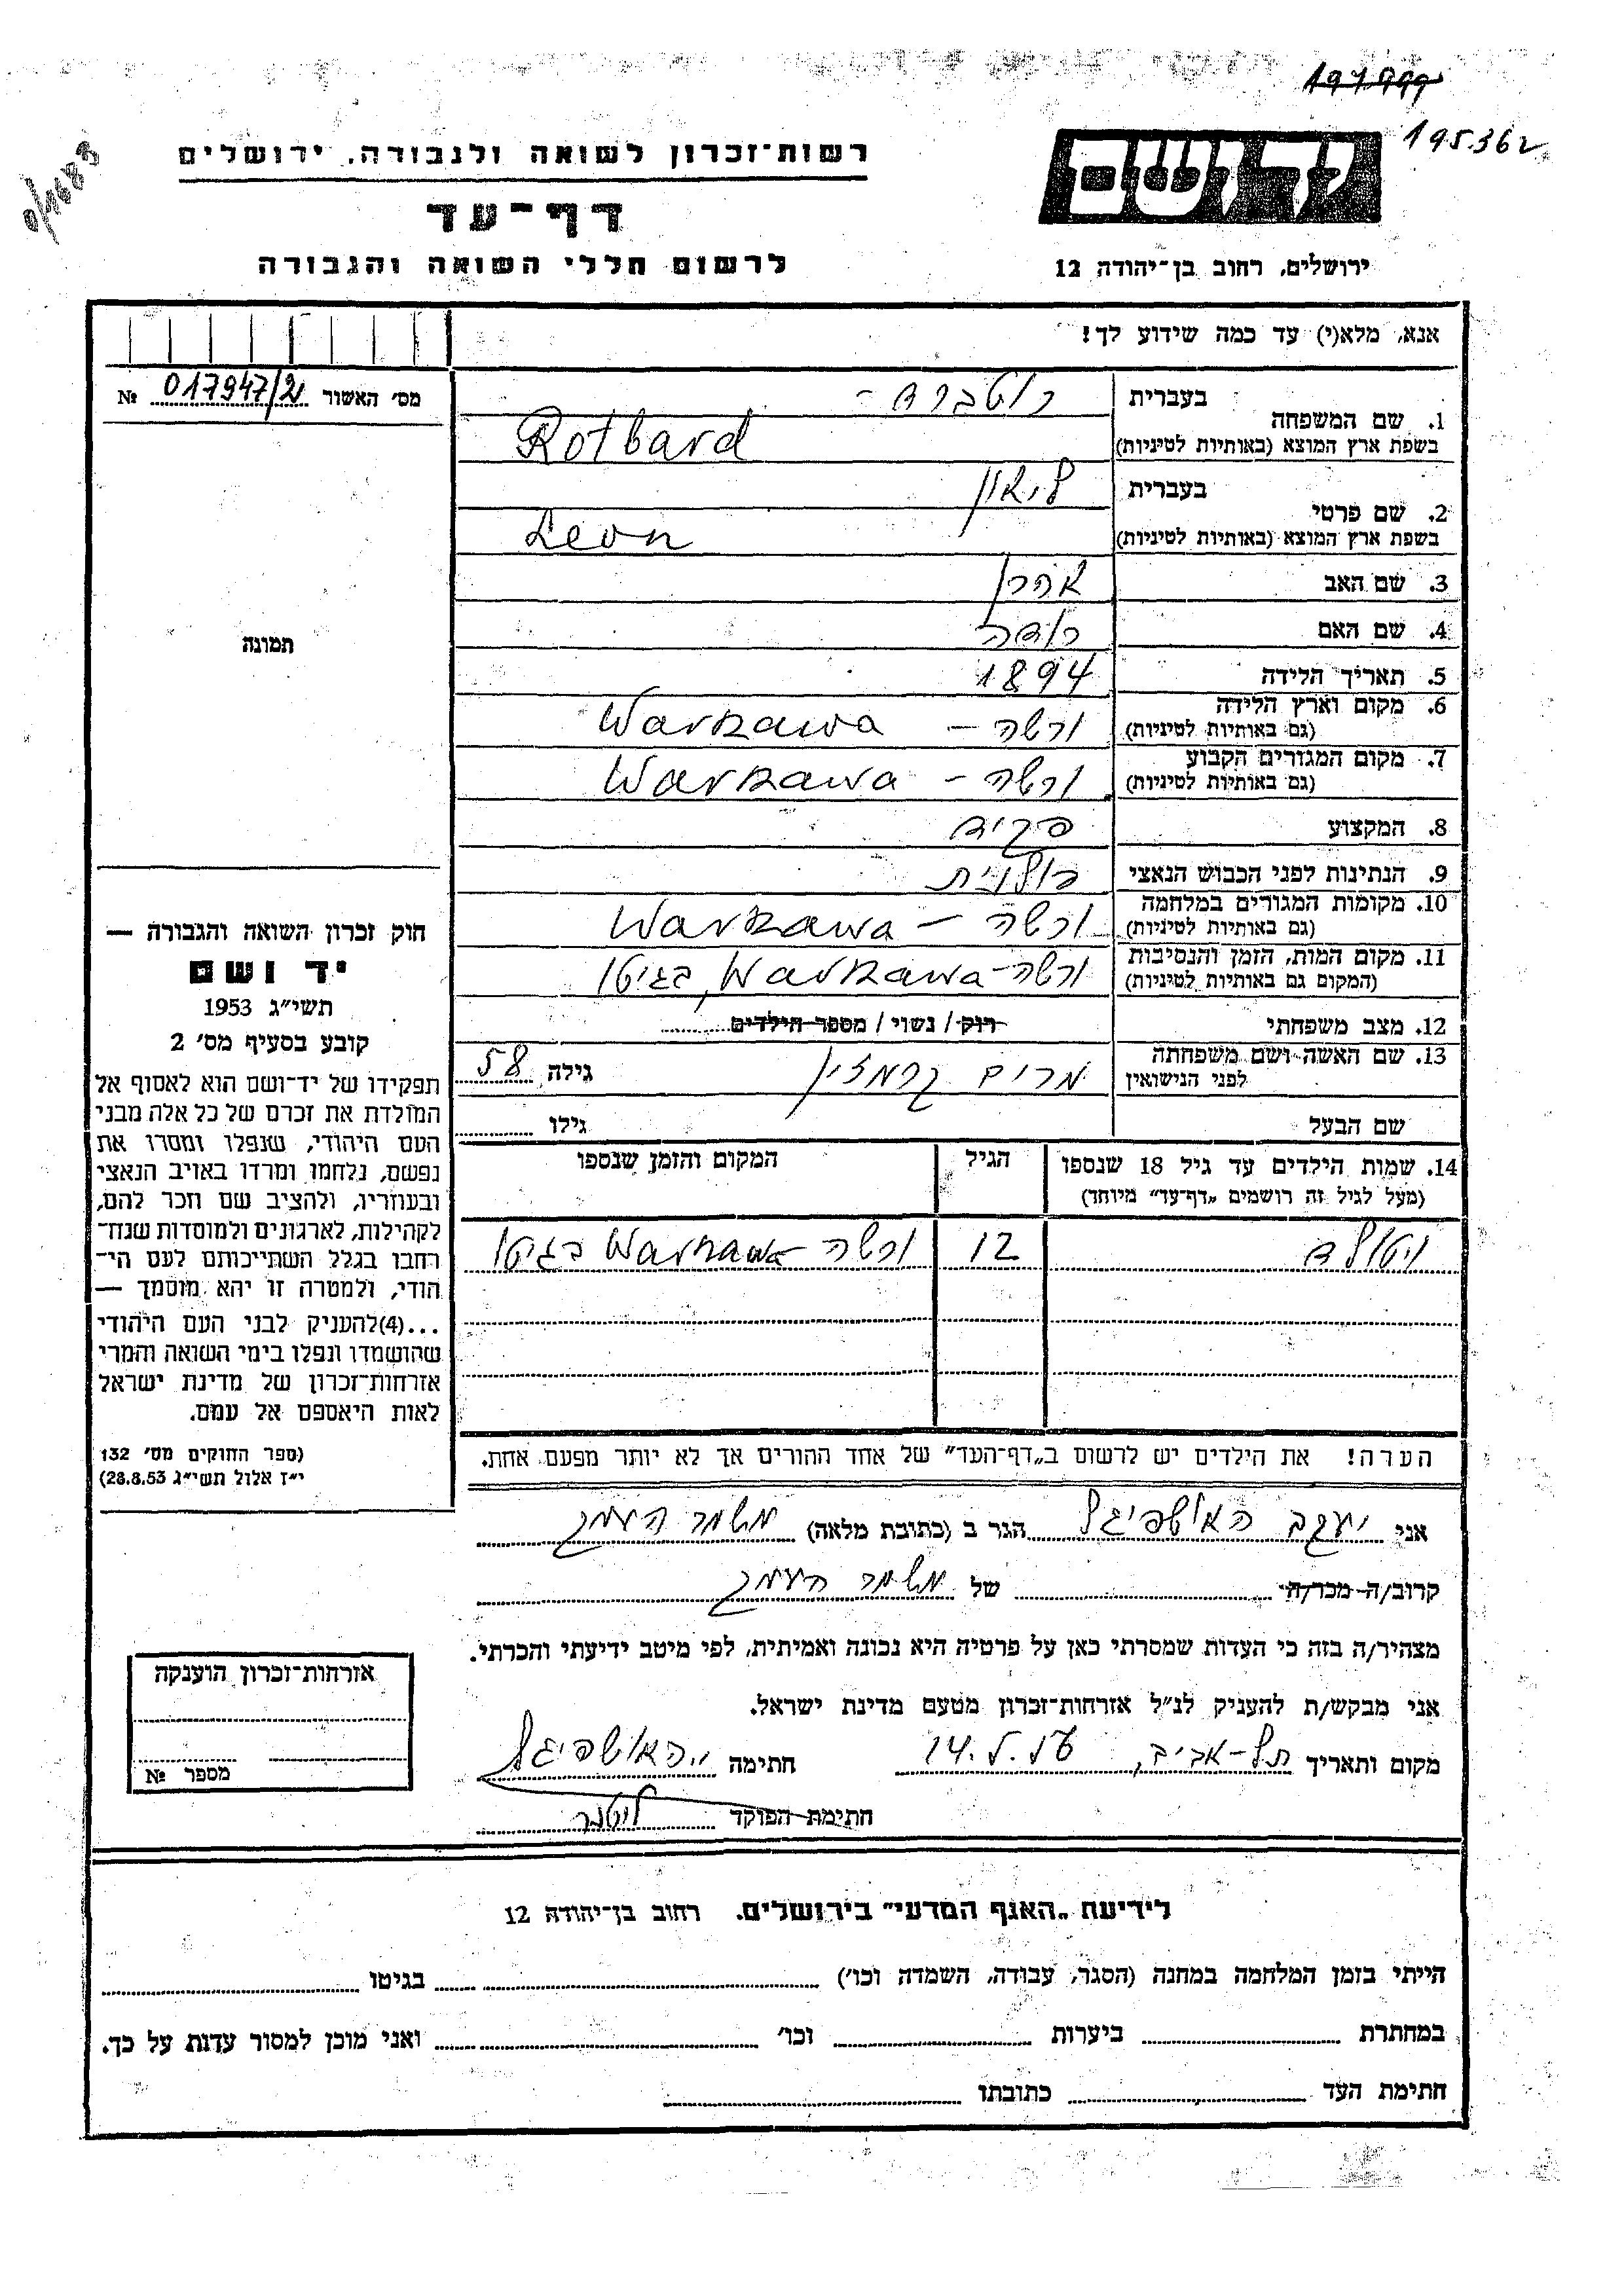 195362
רשות־זכרון לשואה ולגבורה, ירושלים
דף־עד
לרשום חללי השואה והגבורה
יד ושם
ירושלים, רחוב בן־יהודה 12
אנא, מלא(י) עד כמה שידוע לך!
מס׳ האשור 017947/ № 
1. שם המשפחה
בעברית רוטברד -
בשפת ארץ המוצא (באותיות לטיניות) Rotbard
2. שם פרטי
בעברית ליאון
בשפת ארץ המוצא (באותיות לטיניות) Leon
3. שם האב אהרן
4. שם האם
5. תאריך הלידה 1894
6. מקום וארץ הלידה
(גם באותיות לטיניות) ורשה – Warszawa
7. מקום המגורים הקבוע
(גם באותיות לטיניות) ורשה – Warszawa
8. המקצוע פקיד
9. הנתינות לפני הכבוש הנאצי פולנית
10. מקומות המגורים במלחמה
(גם באותיות לטיניות) ורשה – Warszawa
11. מקום המות, הזמן והנסיבות
(המקום גם באותיות לטיניות) ורשה – Warszawa, בגיטו
12. מצב משפחתי רוק / נשוי / מספר הילדים
13. שם האשה ושם משפחתה
לפני הנישואין מרים קרמזין גילה 58
שם הבעל גילו
14. שמות הילדים עד גיל 18 שנספו הגיל המקום והזמן שנספו
(מעל לגיל זה רושמים „דף־עד” מיוחד)
ויטולד 12 ורשה – Warszawa בגיטו
הערה! את הילדים יש לרשום ב„דף־העד” של אחד ההורים אך לא יותר מפעם אחת.
תמונה
חוק זכרון השואה והגבורה —
יד ושם
תשי״ג 1953
קובע בסעיף מס׳ 2
תפקידו של יד־ושם הוא לאסוף אל
המולדת את זכרם של כל אלה מבני
העם היהודי, שנפלו ומסרו את
נפשם, נלחמו ומרדו באויב הנאצי
ובעוזריו, ולהציב שם וזכר להם,
לקהילות, לארגונים ולמוסדות שנח־
רחבו בגלל השתייכותם לעם הי־
הודי, ולמטרה זו יהא מוסמך —
...(4)להעניק לבני העם היהודי
שהושמדו ונפלו בימי השואה והמרי
אזרחות־זכרון של מדינת ישראל
לאות היאספם אל עמם.
(ספר החוקים מס׳ 132
י״ז אלול תשי״ג 28.8.53)
אני יעקב האושפיגל הגר ב (כתובת מלאה) משמר העמק
קרוב/ה מכר/ה של משמר העמק
מצהיר/ה בזה כי העדות שמסרתי כאן על פרטיה היא נכונה ואמיתית, לפי מיטב ידיעתי והכרתי.
אני מבקש/ת להעניק לנ״ל אזרחות־זכרון מטעם מדינת ישראל.
מקום ותאריך תל-אביב, חתימה י. האושפיגל
חתימת הפוקד ליטנר
אזרחות־זכרון הוענקה
מספר №
לידיעת „האגף המדעי” בירושלים. רחוב בן־יהודה 12
הייתי בזמן המלחמה במחנה (הסגר, עבודה, השמדה וכו׳) בגיטו
במחתרת ביערות וכו׳ ואני מוכן למסור עדות על כך.
חתימת העד כתובתו